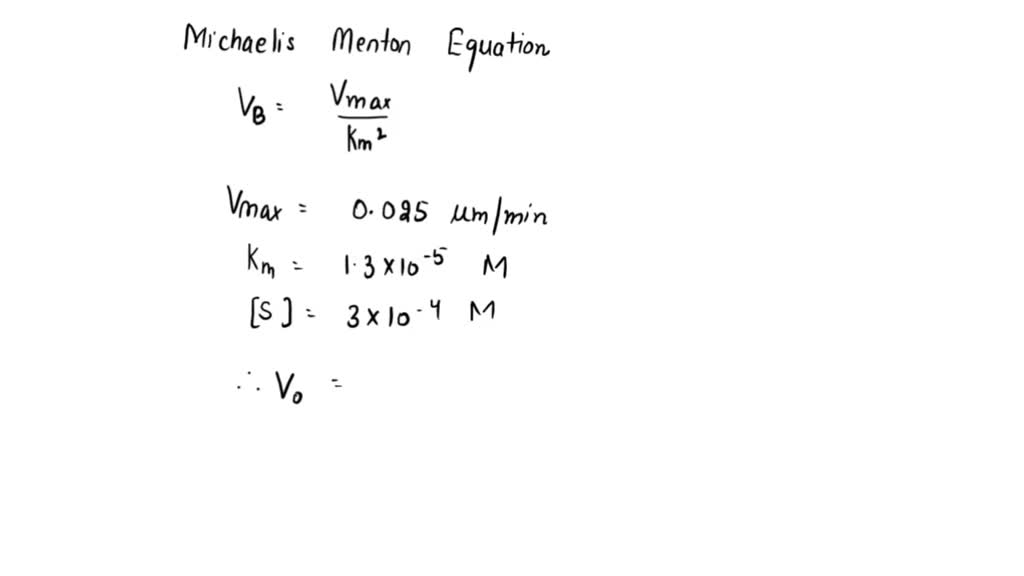 Michaelis Menton Equation
V_B = Vmax / Km²
Vmax = 0.025 μm/min
Km = 1.3 × 10⁻⁵ M
[S] = 3 × 10⁻⁴ M
∴ V₀ =